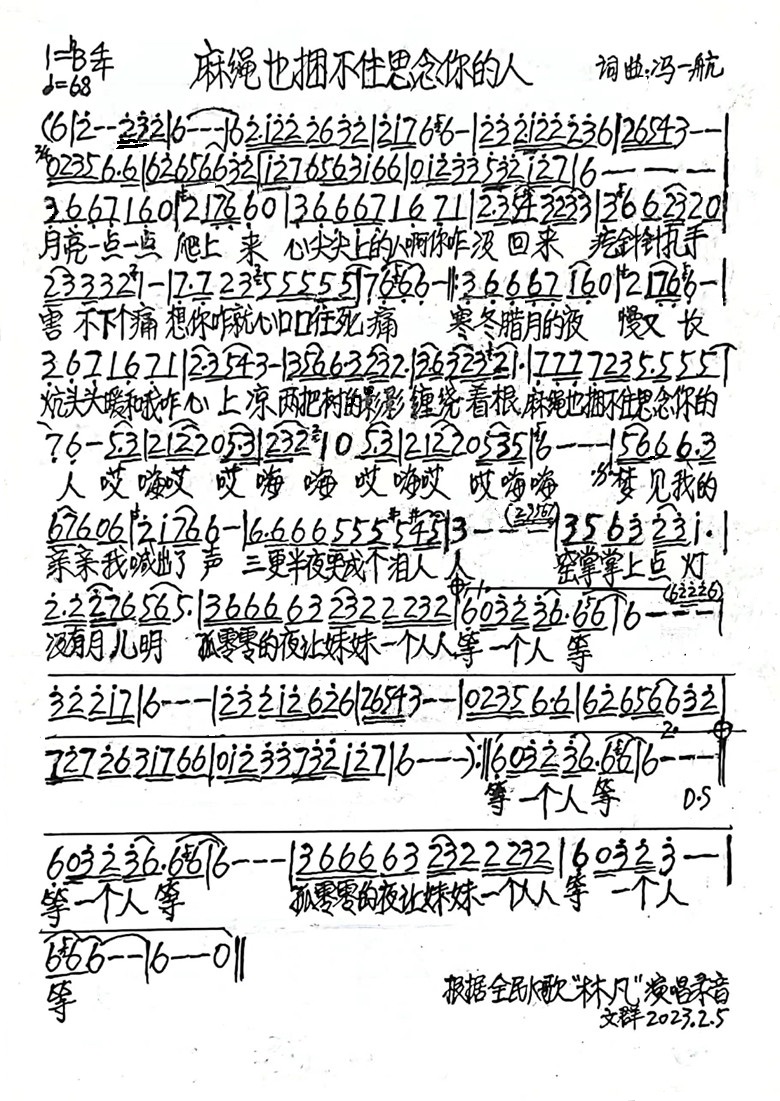 1=♭B 4/4
♩=68
麻绳也捆不住思念你的人
词曲:冯一航
(6|2--232|6---|62122 2632|21766-|2321222 36|26543--|
02356.6|626566632|1276563166|01233532127|6----|
3.6671 60|2 176 60|3.6667 1671|2.3543233|3662320|
月亮一点一点 爬上 来 心尖尖上的人啊你咋没 回来 疙针针扎手
233321-|7.7 2355555|7666-|:3.6667 160|21766-|
害 不下个痛 想你咋就心口口往死 痛 寒冬腊月的夜 慢又 长
3.671671|2.3543-|3566.3232.|36323221.|777723 5.555|
炕头头暖和我咋心 上 凉 两把树的影影 缠绕 着根 麻绳也捆不住思念你的
76-5.3|2122053|232 10 5.3|21220535|6---|5666.3
人 哎 嗨哎 哎 嗨 嗨 哎 嗨哎 哎嗨嗨 梦 见我的
67606|21766-|6.666555545|3---(2356)|3563231.|
亲亲我喊出了 声 三更半夜更成个泪人 人 窑掌掌上点 灯
2.2276565.|36666323222232|6032 36.66|6---(62226)|
没有月儿明 孤零零的夜让妹妹一个人人等 一个人 等
32217|6---|2321212626|26543--|02356.6|626566632|
72726317 66|01233732127|6---):‖6032 36.66|6----‖
等 一个人 等 D.S
6032 36.66|6---|36666323222232|6 0323--|
等 一个人 等 孤零零的夜让妹妹一个人人 等 一个人
666--|6--0‖
等
根据全民K歌“林凡”演唱录音
文群 2023.2.5